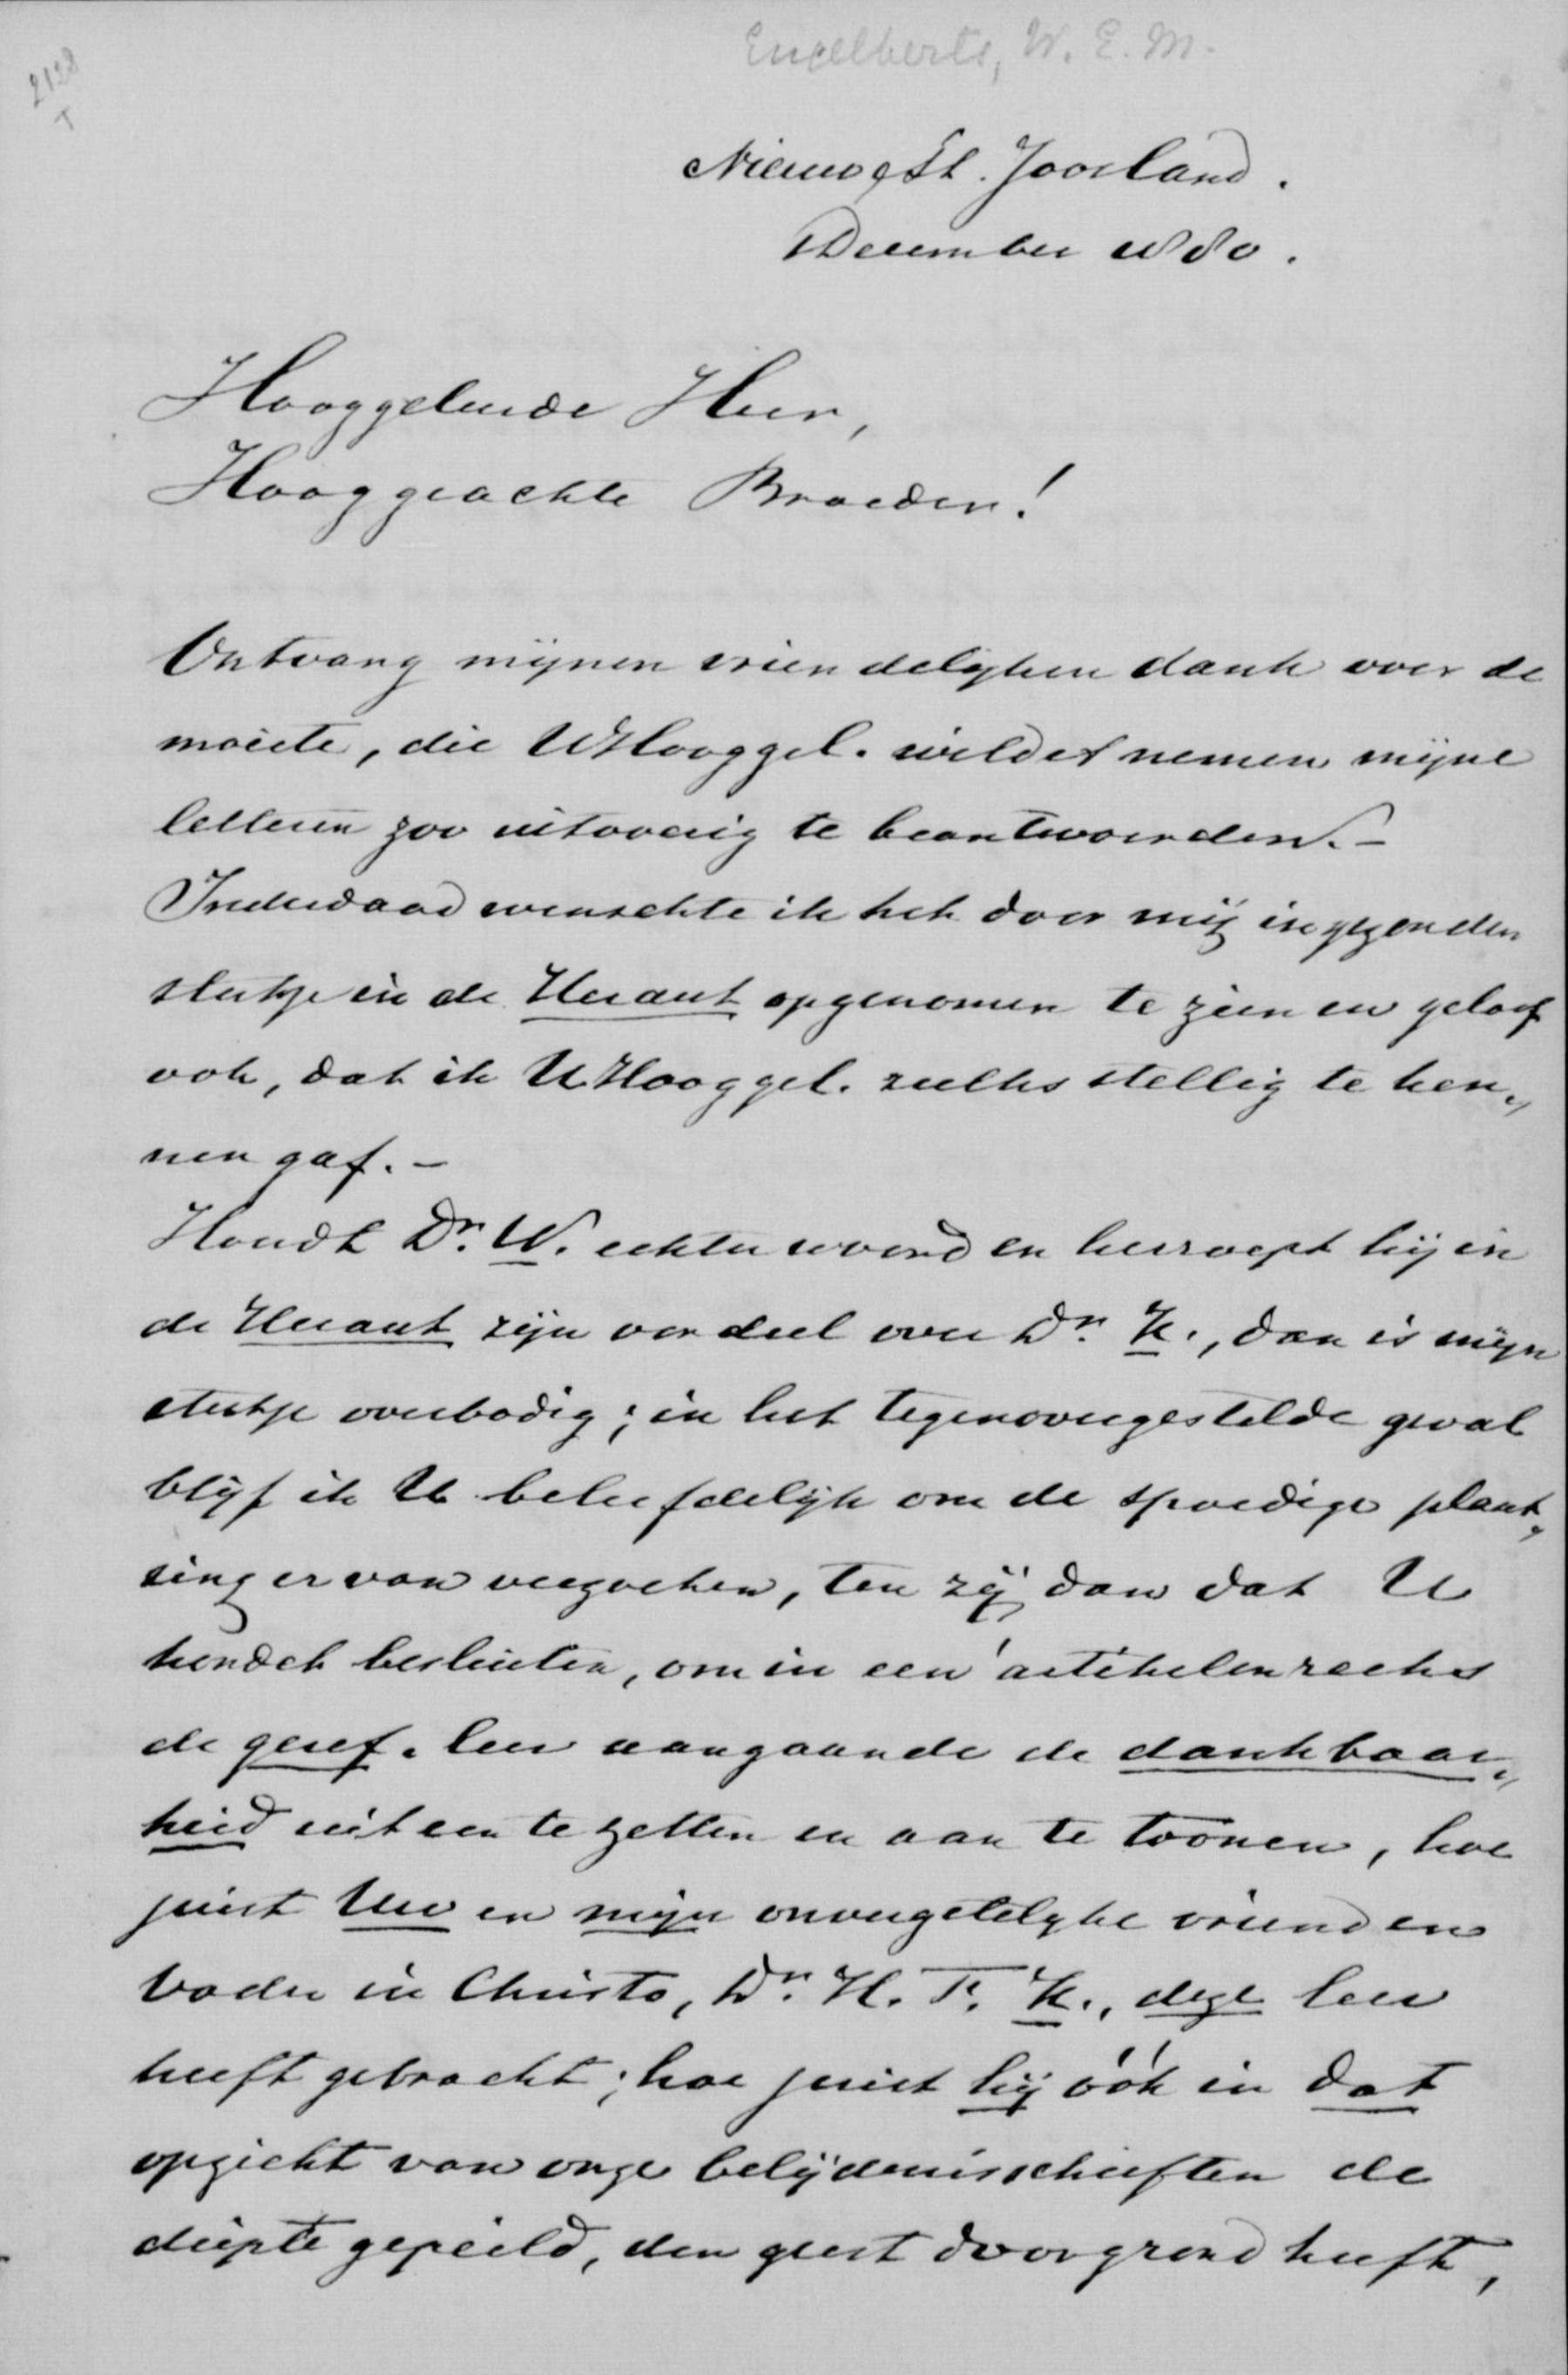 Engelberts, W. E. M.
2128
T
Nieuw & St. Joosland.
December 1880.
Hooggeleerde Heer,
Hooggeachte Broeder!
Ontvang mijnen vriendelijken dank voor de
moeite, die UHooggel. wildet nemen mijne
letteren zoo uitvoerig te beantwoorden. –
Inderdaad wenschte ik het door mij ingezonden
stukje in de Heraut opgenomen te zien en geloof
ook, dat ik UHooggel. zulks stellig te ken„
nen gaf. –
Houdt Dr. W. echter woord en herroept hij in
de Heraut zijn oordeel over Dr. K., dan is mijn
stukje overbodig; in het tegenovergestelde geval
blijf ik U beleefdelijk om de spoedige plaat„
sing ervan verzoeken, ten zij dan dat U
kondet besluiten, om in een artikelenreeks
de geref. leer aangaande de dankbaar„
heid uit een te zetten en aan te toonen, hoe
juist Uw en mijn onvergetelijke vriend en
Vader in Christo, Dr. H. F. K., deze leer
heeft gebracht; hoe juist hij óók in dat
opzicht van onze belijdenisschriften de
diepte gepeild, den geest doorgrond heeft,